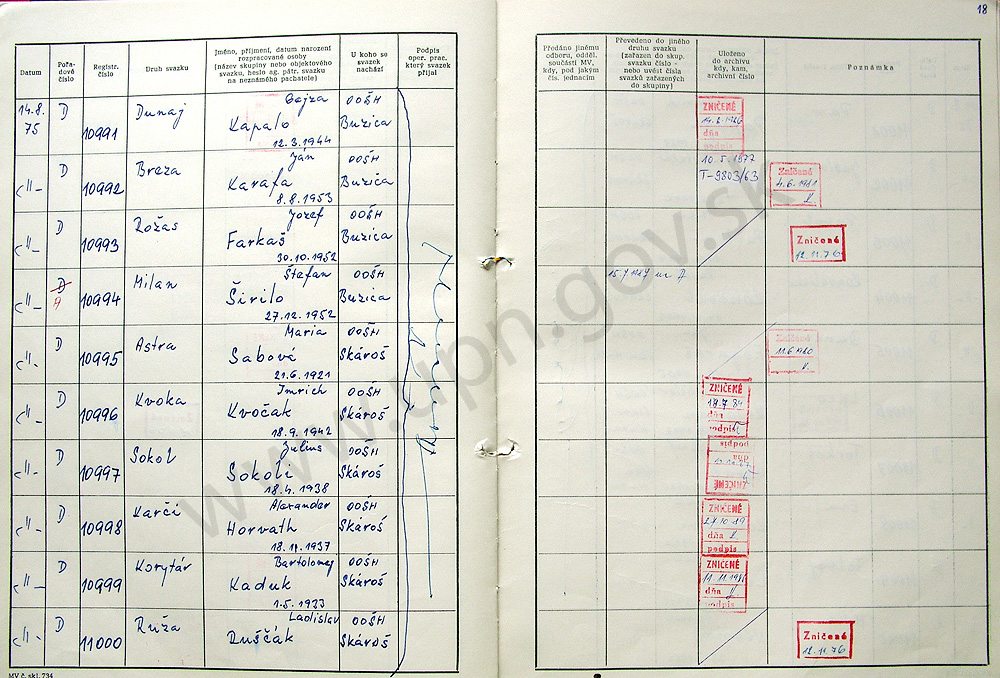 18
Datum
Pořadové číslo
Registr. číslo
Druh svazku
Jméno, příjmení, datum narození rozpracované osoby (název skupiny nebo objektového svazku, heslo ag. pátr. svazku na neznámého pachatele)
U koho se svazek nachází
Podpis oper. prac. který svazek přijal
Předáno jinému odboru, odděl. součásti MV, kdy, pod jakým čís. jednacím
Převedeno do jiného druhu svazku (zařazen do skup. svazku číslo - nebo uvést čísla svazků zařazených do skupiny)
Uloženo do archivu kdy, kam, archivní číslo
Poznámka
14.8. 75 D 10991 Dunaj Gejza Kapalo 12.3.1944 OOŠH Buzica
ZNIČENÉ
dňa
podpis
-"- D 10992 Breza Ján Karafa 8.8.1953 OOŠH Buzica
10.5.1977
T-9803/63
Zničené
4.6.1981
-"- D 10993 Rožas Jozef Farkaš 30.10.1952 OOŠH Buzica
Zničené
12.11.76
-"- D A 10994 Milan Štefan Širilo 27.12.1952 OOŠH Buzica
-"- D 10995 Astra Maria Sabová 21.6.1921 OOŠH Skároš
11.6.1980
-"- D 10996 Kvoka Imrich Kvočak 18.9.1942 OOŠH Skároš
ZNIČENÉ
19.7.84
dňa
podpis
-"- D 10997 Sokol Július Sokoli 18.4.1938 OOŠH Skároš
ZNIČENÉ
dňa
podpis
-"- D 10998 Karči Alexander Horvath 18.11.1937 OOŠH Skároš
ZNIČENÉ
27.10.19
dňa
podpis
-"- D 10999 Korytár Bartolomej Kaduk 1.5.1923 OOŠH Skároš
ZNIČENÉ
dňa
podpis
-"- D 11000 Ruža Ladislav Duščák OOŠH Skároš
Zničené
12.11.76
MV č. skl. 734
www.upn.gov.sk